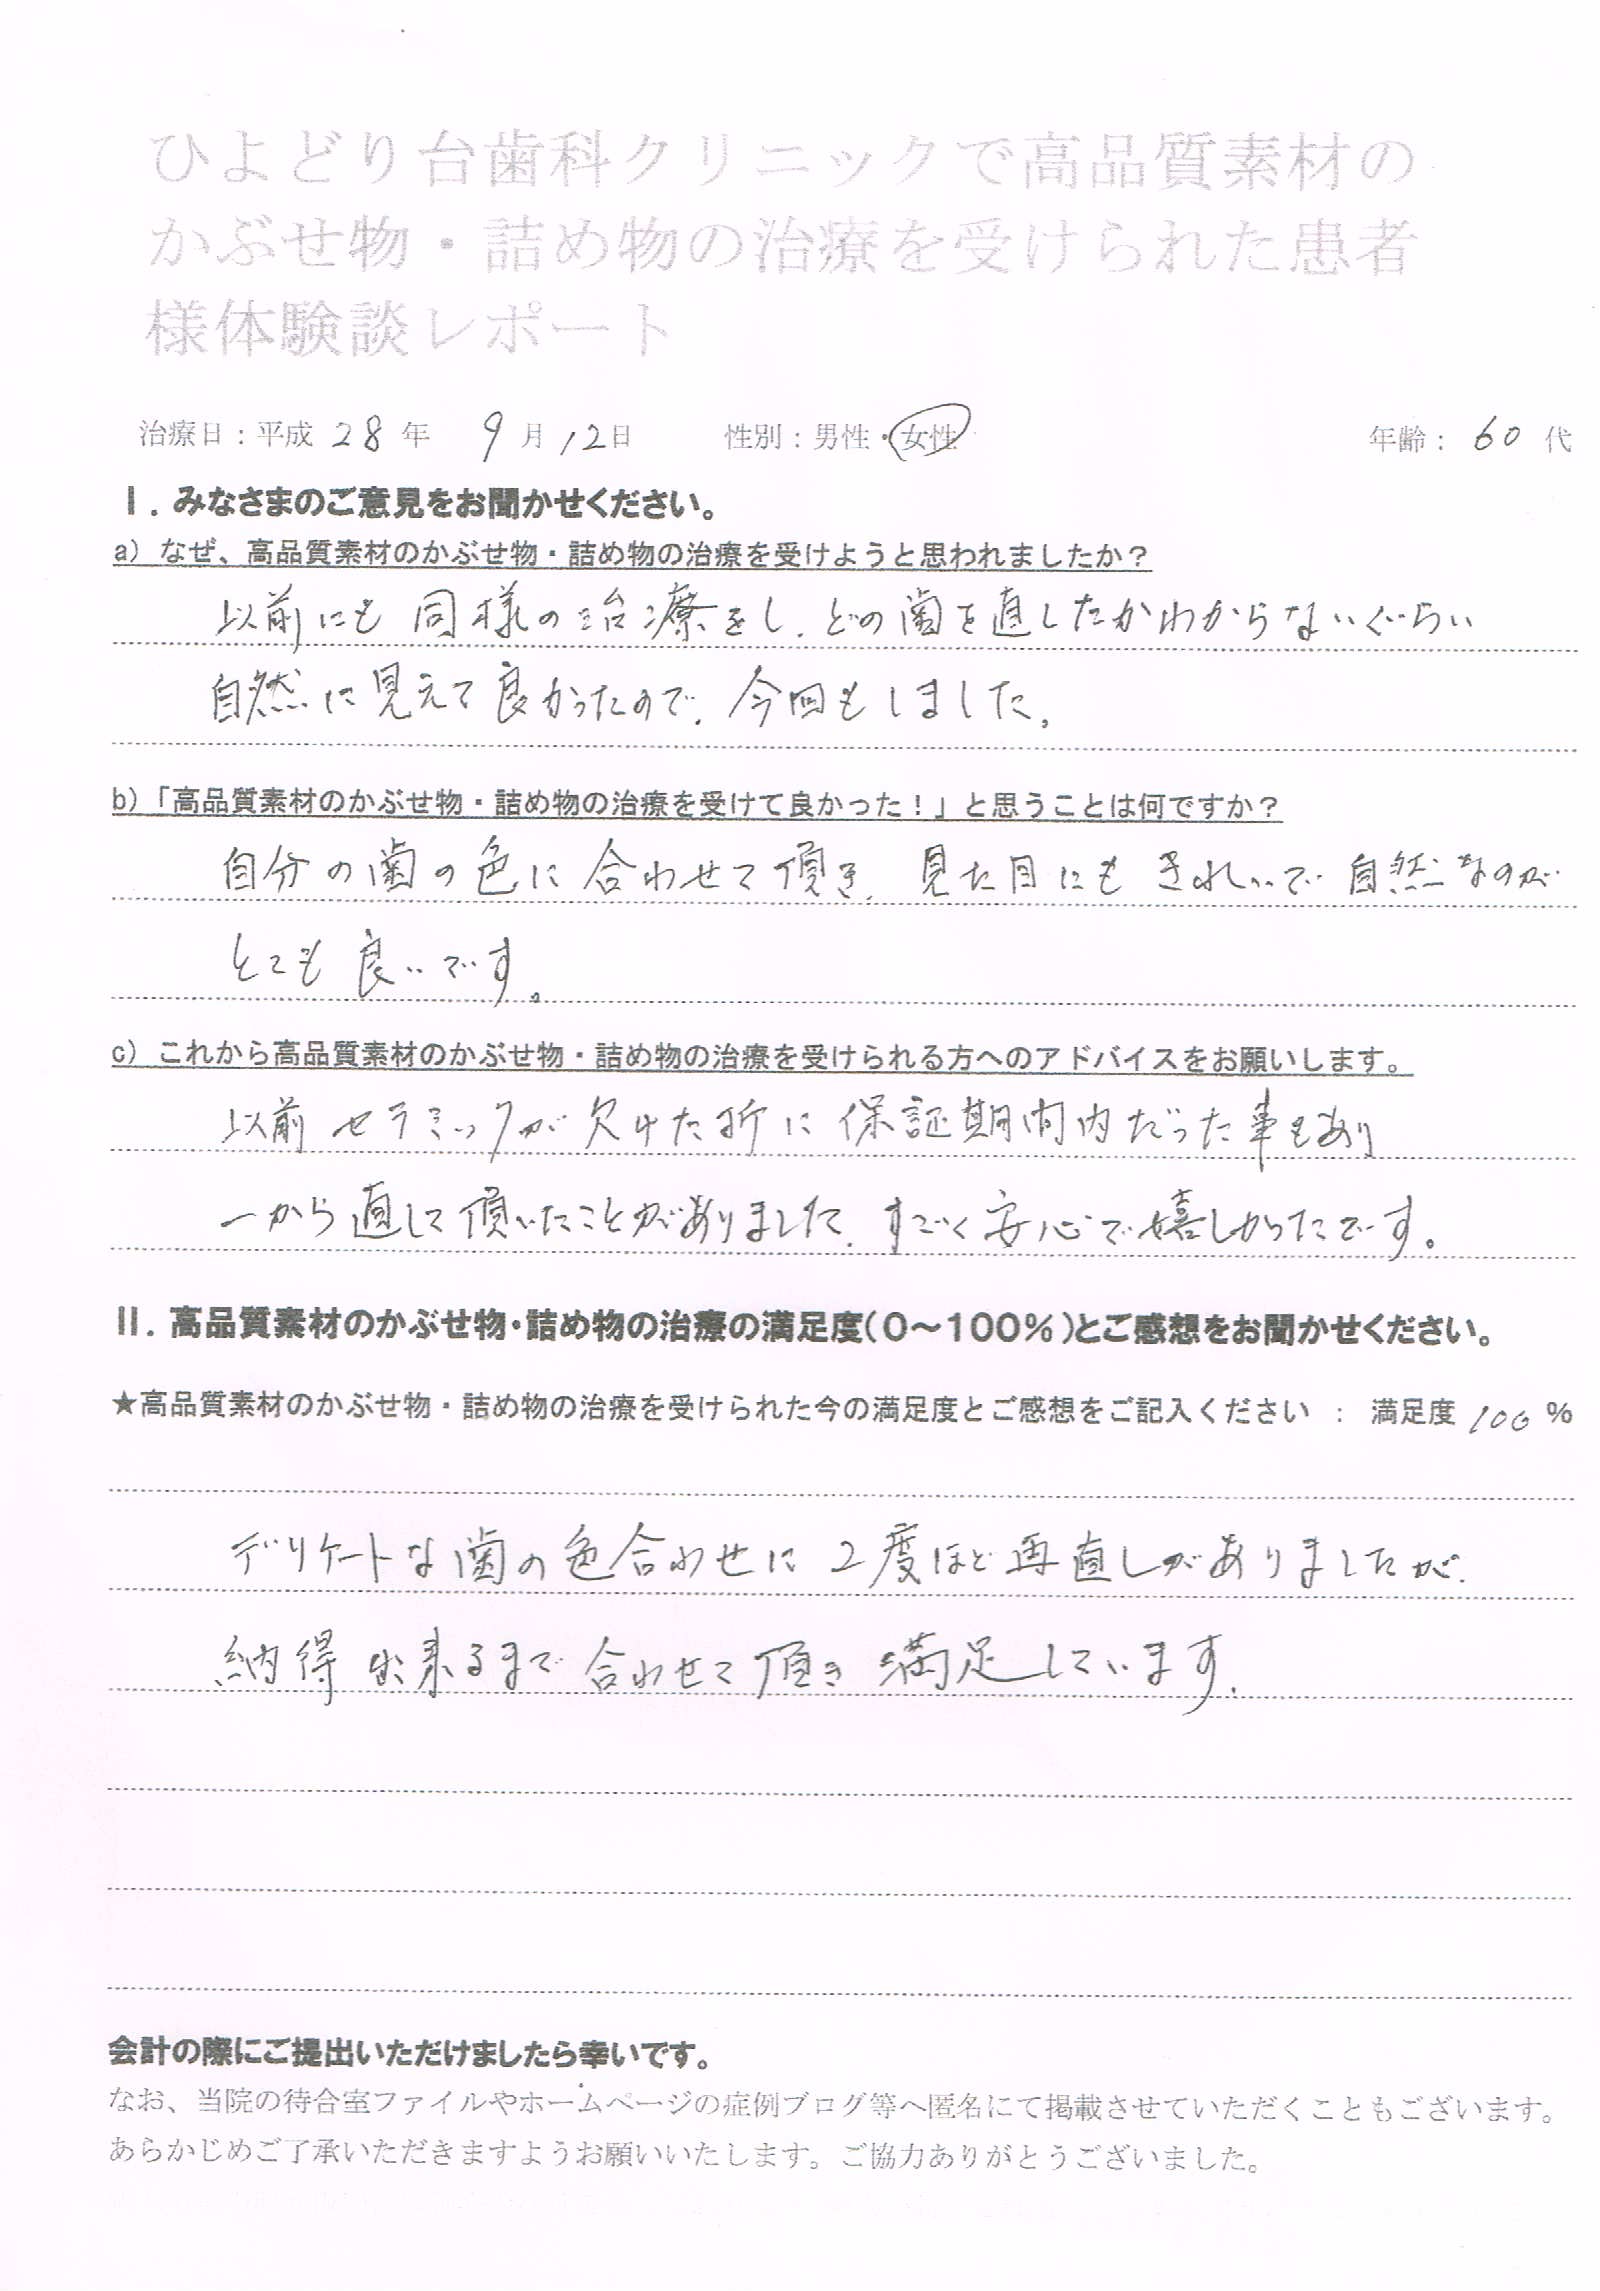 ひよどり台歯科クリニックで高品質素材の
かぶせ物・詰め物の治療を受けられた患者
様体験談レポート
治療日：平成 28 年 9 月 12日 性別：男性・女性 年齢： 60 代
Ⅰ．みなさまのご意見をお聞かせください。
a）なぜ、高品質素材のかぶせ物・詰め物の治療を受けようと思われましたか？
以前にも同様の治療をし、どの歯を直したかわからないぐらい
自然に見えて良かったので、今回もしました。
b）「高品質素材のかぶせ物・詰め物の治療を受けて良かった！」と思うことは何ですか？
自分の歯の色に合わせて頂き、見た目にもきれいで自然なのが
とても良いです。
c）これから高品質素材のかぶせ物・詰め物の治療を受けられる方へのアドバイスをお願いします。
以前セラミックが欠けた折に保証期間内だった事もあり
一から直して頂いたことがありました。すごく安心で嬉しかったです。
Ⅱ．高品質素材のかぶせ物・詰め物の治療の満足度（０～１００％）とご感想をお聞かせください。
★高品質素材のかぶせ物・詰め物の治療を受けられた今の満足度とご感想をご記入ください ： 満足度 100 ％
デリケートな歯の色合わせに２度ほど再直しがありましたが、
納得出来るまで合わせて頂き満足しています。
会計の際にご提出いただけましたら幸いです。
なお、当院の待合室ファイルやホームページの症例ブログ等へ匿名にて掲載させていただくこともございます。
あらかじめご了承いただきますようお願いいたします。ご協力ありがとうございました。